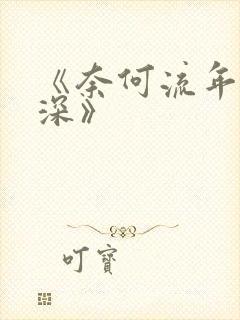 《奈何流年
深》
叮寶